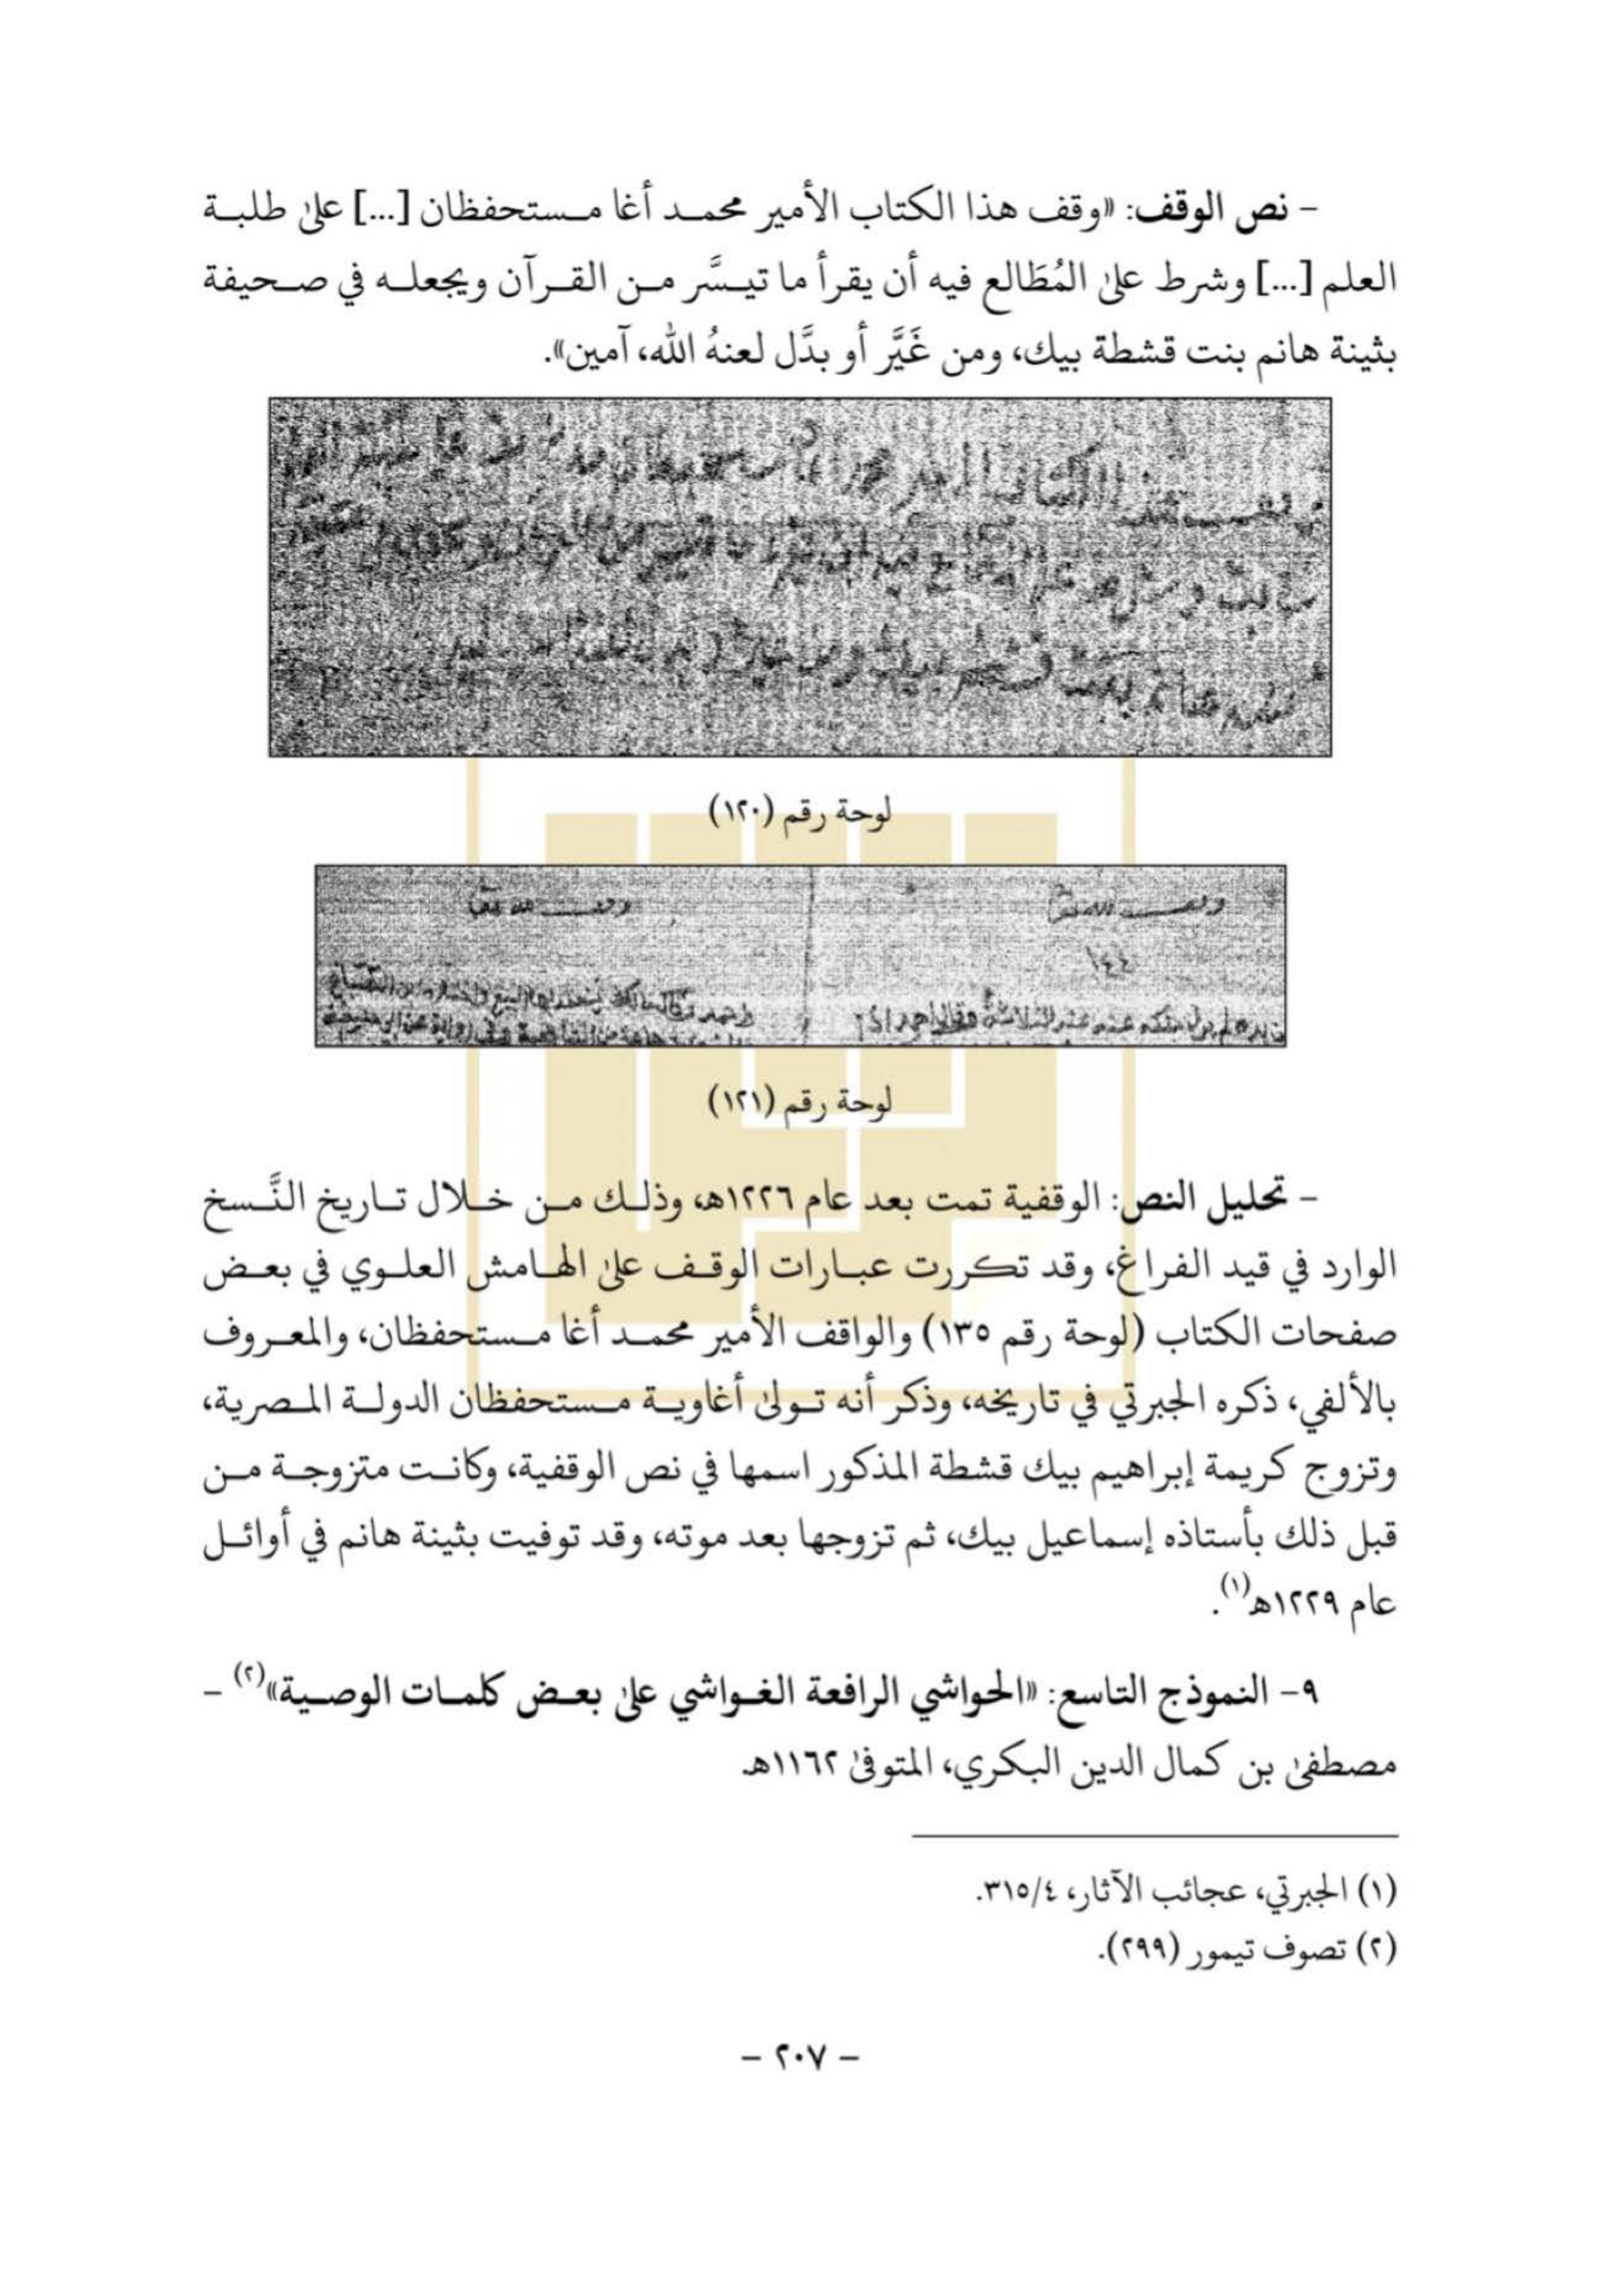 – نص الوقف: «وقف هذا الكتاب الأمير محمد أغا مستحفظان [...] على طلبة
العلم [...] وشرط على المُطَالع فيه أن يقرأ ما تيسَّر من القرآن ويجعله في صحيفة
بثينة هانم بنت قشطة بيك، ومن غَيَّر أو بدَّل لعنهُ الله، آمين».
لوحة رقم (١٢٠)
وقف لله تعالى
وقف لله تعالى
١٤٤
لوحة رقم (١٢١)
– تحليل النص: الوقفية تمت بعد عام ١٢٢٦هـ، وذلك من خلال تاريخ النَّسخ
الوارد في قيد الفراغ، وقد تكررت عبارات الوقف على الهامش العلوي في بعض
صفحات الكتاب (لوحة رقم ١٣٥) والواقف الأمير محمد أغا مستحفظان، والمعروف
بالألفي، ذكره الجبرتي في تاريخه، وذكر أنه تولى أغاوية مستحفظان الدولة المصرية،
وتزوج كريمة إبراهيم بيك قشطة المذكور اسمها في نص الوقفية، وكانت متزوجة من
قبل ذلك بأستاذه إسماعيل بيك، ثم تزوجها بعد موته، وقد توفيت بثينة هانم في أوائل
عام ١٢٢٩هـ(١).
٩- النموذج التاسع: «الحواشي الرافعة الغواشي على بعض كلمات الوصية»(٢) –
مصطفى بن كمال الدين البكري، المتوفى ١١٦٢هـ
(١) الجبرتي، عجائب الآثار، ٣١٥/٤.
(٢) تصوف تيمور (٢٩٩).
– ٢٠٧ –